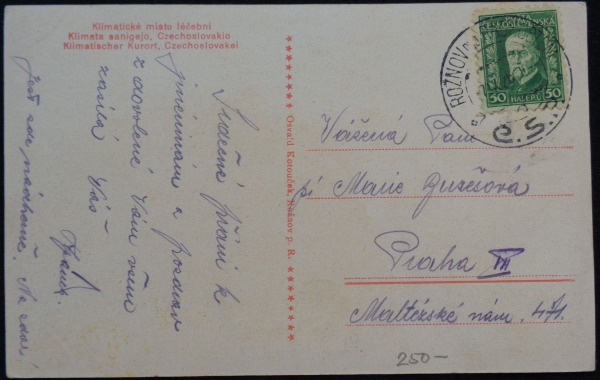 Klimatické místo léčební
Klimata sanigejo, Czechoslovakio
Klimatischer Kurort, Czechoslovakei
Srdečné přání k
jmeninám a pozdrav
z dovolené Vám všem
zasílá Váš
Jest zde nádherně. Na zdar!
Osvald Kotouček, Rožnov p. R.
ČESKOSLOVENSKÁ
50 HALÉŘŮ 50
ROŽNOV
Č.S.
Vážená Paní
pí Marie
Praha III
Maltézské nám. 471.
250-